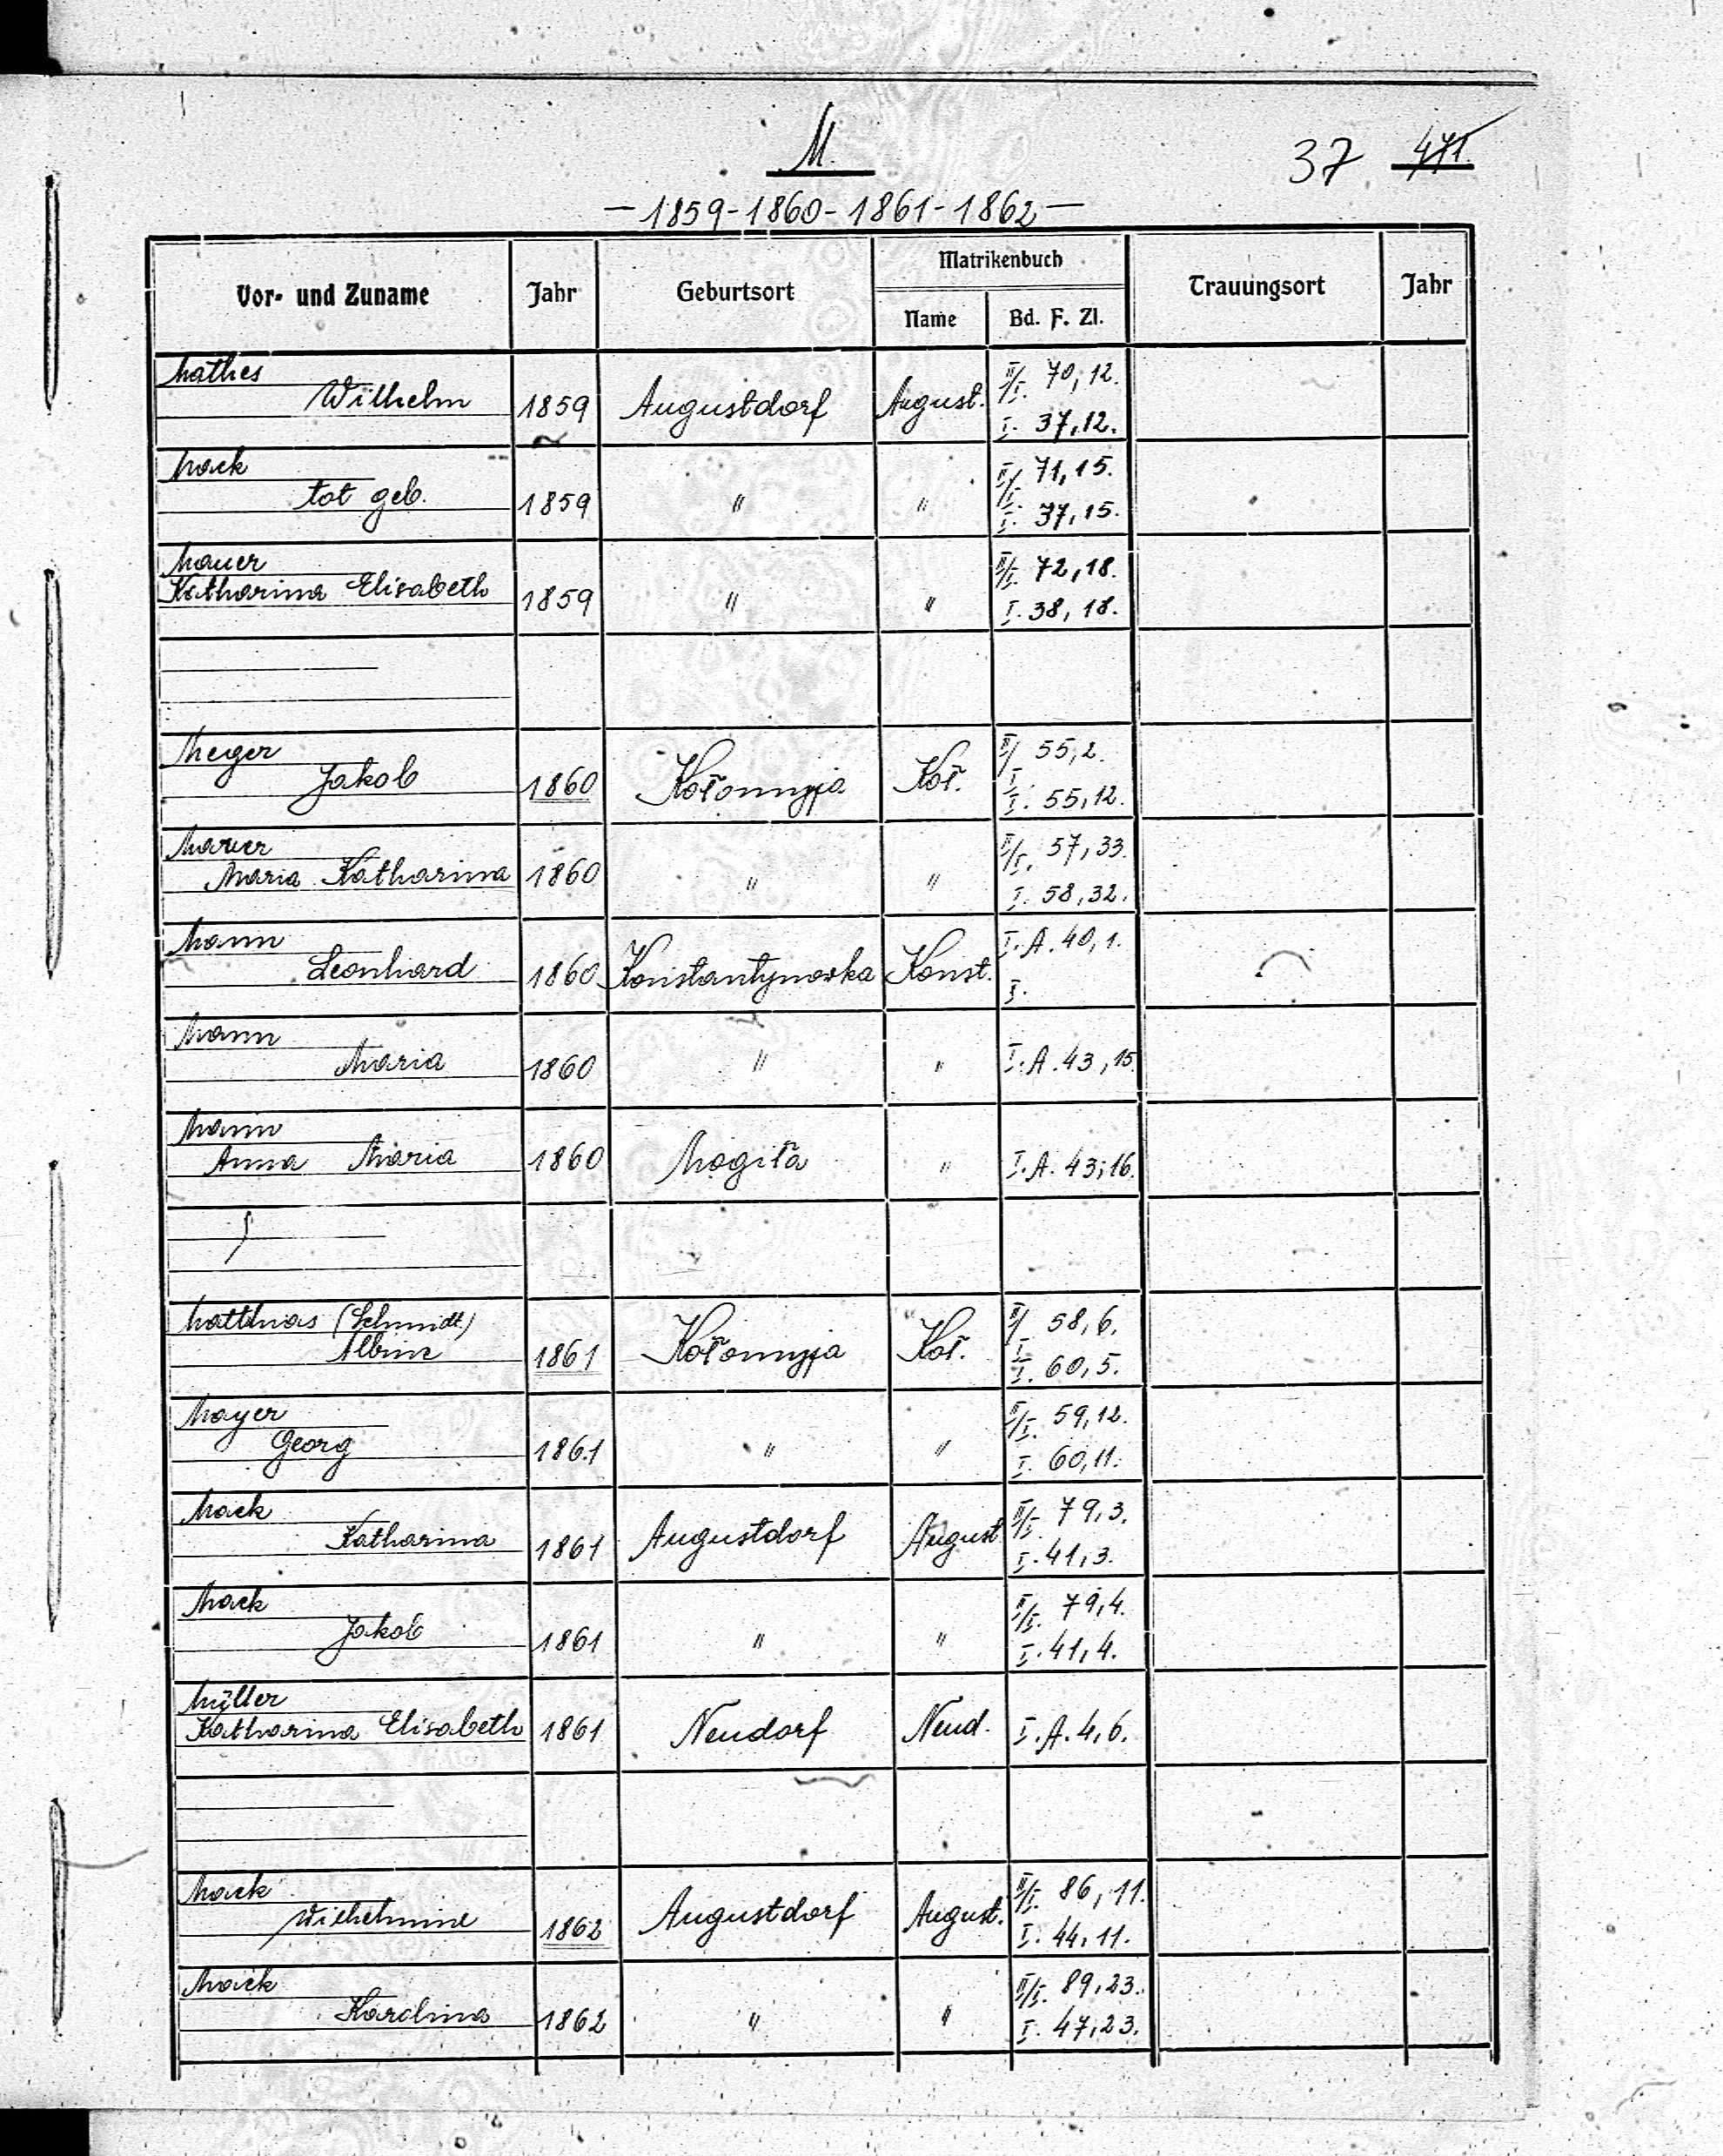 M.
37 471.
— 1859-1860-1861-1862 —
Vor- und Zuname Jahr Geburtsort Matrikenbuch Trauungsort Jahr
Name Bd. F. Zl.
Mathes II/I. 70,12.
Wilhelm 1859 Augustdorf August. I. 37,12.
Mack II/I 71,15.
tot geb. 1859 " " I. 37,15.
Mauer II/I. 72,18.
Katharina Elisabeth 1859 " " I. 38,18.
Meger II/I 55,2.
Jakob 1860 Kołomyja Koł. I. 55,12.
Mauer II/I. 57,33.
Maria Katharina 1860 " " I. 58,32.
Mann I. A. 40,1.
Leonhard 1860 Konstantynowka Konst. I.
Mann
Maria 1860 " " I. A. 43,15
Mann
Anna Maria 1860 Mogiła " I. A. 43,16.
Matthias (Schmidt) II/I 58,6.
Albine 1861 Kołomyja Koł. I. 60,5.
Mayer II/I. 59,12.
Georg 1861 " " I. 60,11.
Mack II/I. 79,3.
Katharina 1861 Augustdorf August I. 41,3.
Mack II/I. 79,4.
Jakob 1861 " " I. 41,4.
Müller
Katharina Elisabeth 1861 Neudorf Neud. I. A. 4,6.
Mack II/I. 86,11.
Wilhelmine 1862 Augustdorf August. I. 44,11.
Mack II/I. 89,23.
Karolina 1862 " " I. 47,23.